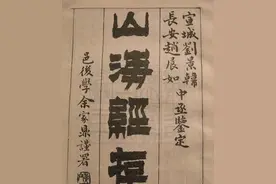 宣城劉景韓
長安趙展如中丞鑒定
山海經存
邑後學余家鼎謹署